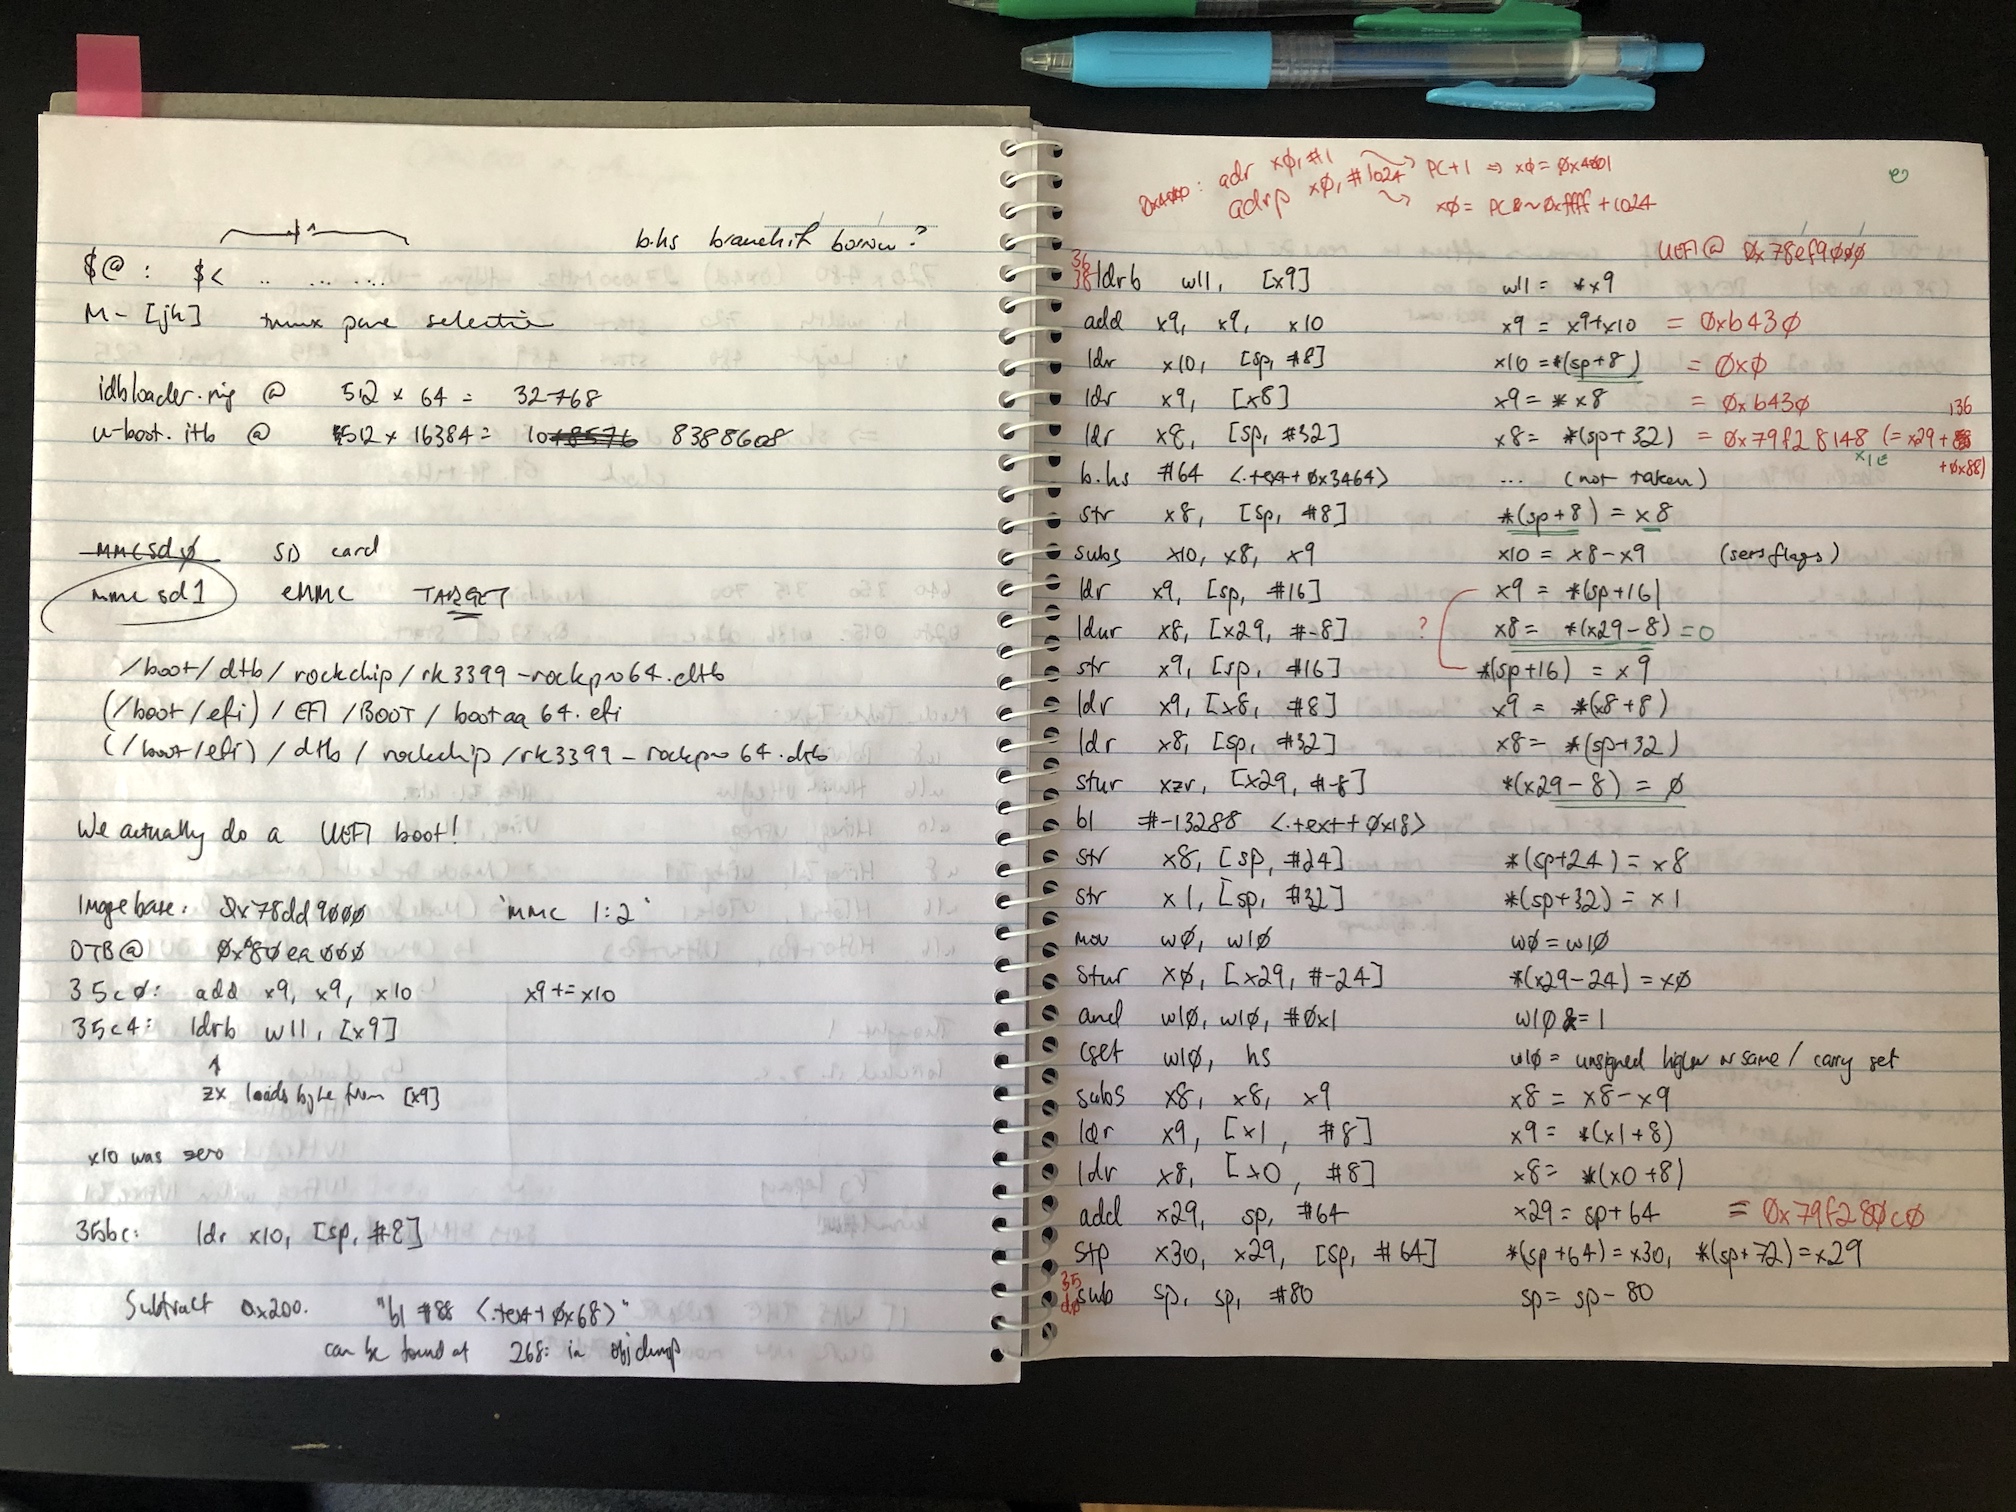 b.hs branch if borrow?
$@ : $< .. ... ....
M-[jk] tmux pane selection
idbloader.img @ 512 × 64 = 32768
u-boot.itb @ 512 × 16384 = 1048576 8388608
mmcsd0 SD card
mmcsd1 eMMC TARGET
/boot/dtb/rockchip/rk3399-rockpro64.dtb
(/boot/efi)/EFI/BOOT/bootaa64.efi
(/boot/efi)/dtb/rockchip/rk3399-rockpro64.dtb
We actually do a UEFI boot!
Image base: 0x78dd9000 'mmc 1:2'
DTB@ 0x80ea000
35c0: add x9, x9, x10 x9 += x10
35c4: ldrb w11, [x9]
↑
zx loads byte from [x9]
x10 was zero
35bc: ldr x10, [sp, #8]
Subtract 0x200. "bl #88 <.text+0x68)"
can be found at 268: in objdump
0x4000: adr x0, #1 → PC+1 ⇒ x0 = 0x4001
adrp x0, #1024 → x0 = PC&~0xffff + 1024
UEFI@ 0x78ef9000
36
38 ldrb w11, [x9] w11 = *x9
add x9, x9, x10 x9 = x9+x10 = 0xb430
ldr x10, [sp, #8] x10 = *(sp+8) = 0x0
ldr x9, [x8] x9 = * x8 = 0xb430
136
ldr x8, [sp, #32] x8 = *(sp+32) = 0x79f28148 (= x29 +
x1E +0x88)
b.hs #64 <.text+0x3464> ... (not taken)
str x8, [sp, #8] *(sp+8) = x8
subs x10, x8, x9 x10 = x8-x9 (sets flags)
ldr x9, [sp, #16] x9 = *(sp+16)
ldur x8, [x29, #-8] ? x8 = *(x29-8) = 0
str x9, [sp, #16] *(sp+16) = x9
ldr x9, [x8, #8] x9 = *(x8+8)
ldr x8, [sp, #32] x8 = *(sp+32)
stur xzr, [x29, #-8] *(x29-8) = 0
bl #-13288 <.text+0x18>
str x8, [sp, #24] *(sp+24) = x8
str x1, [sp, #32] *(sp+32) = x1
mov w0, w10 w0 = w10
stur x0, [x29, #-24] *(x29-24) = x0
and w10, w10, #0x1 w10 &= 1
cset w10, hs w10 = unsigned higher or same / carry set
subs x8, x8, x9 x8 = x8-x9
ldr x9, [x1, #8] x9 = *(x1+8)
ldr x8, [x0, #8] x8 = *(x0+8)
add x29, sp, #64 x29 = sp+64 = 0x79f280c0
stp x30, x29, [sp, #64] *(sp+64) = x30, *(sp+72) = x29
35
d0 sub sp, sp, #80 sp = sp-80